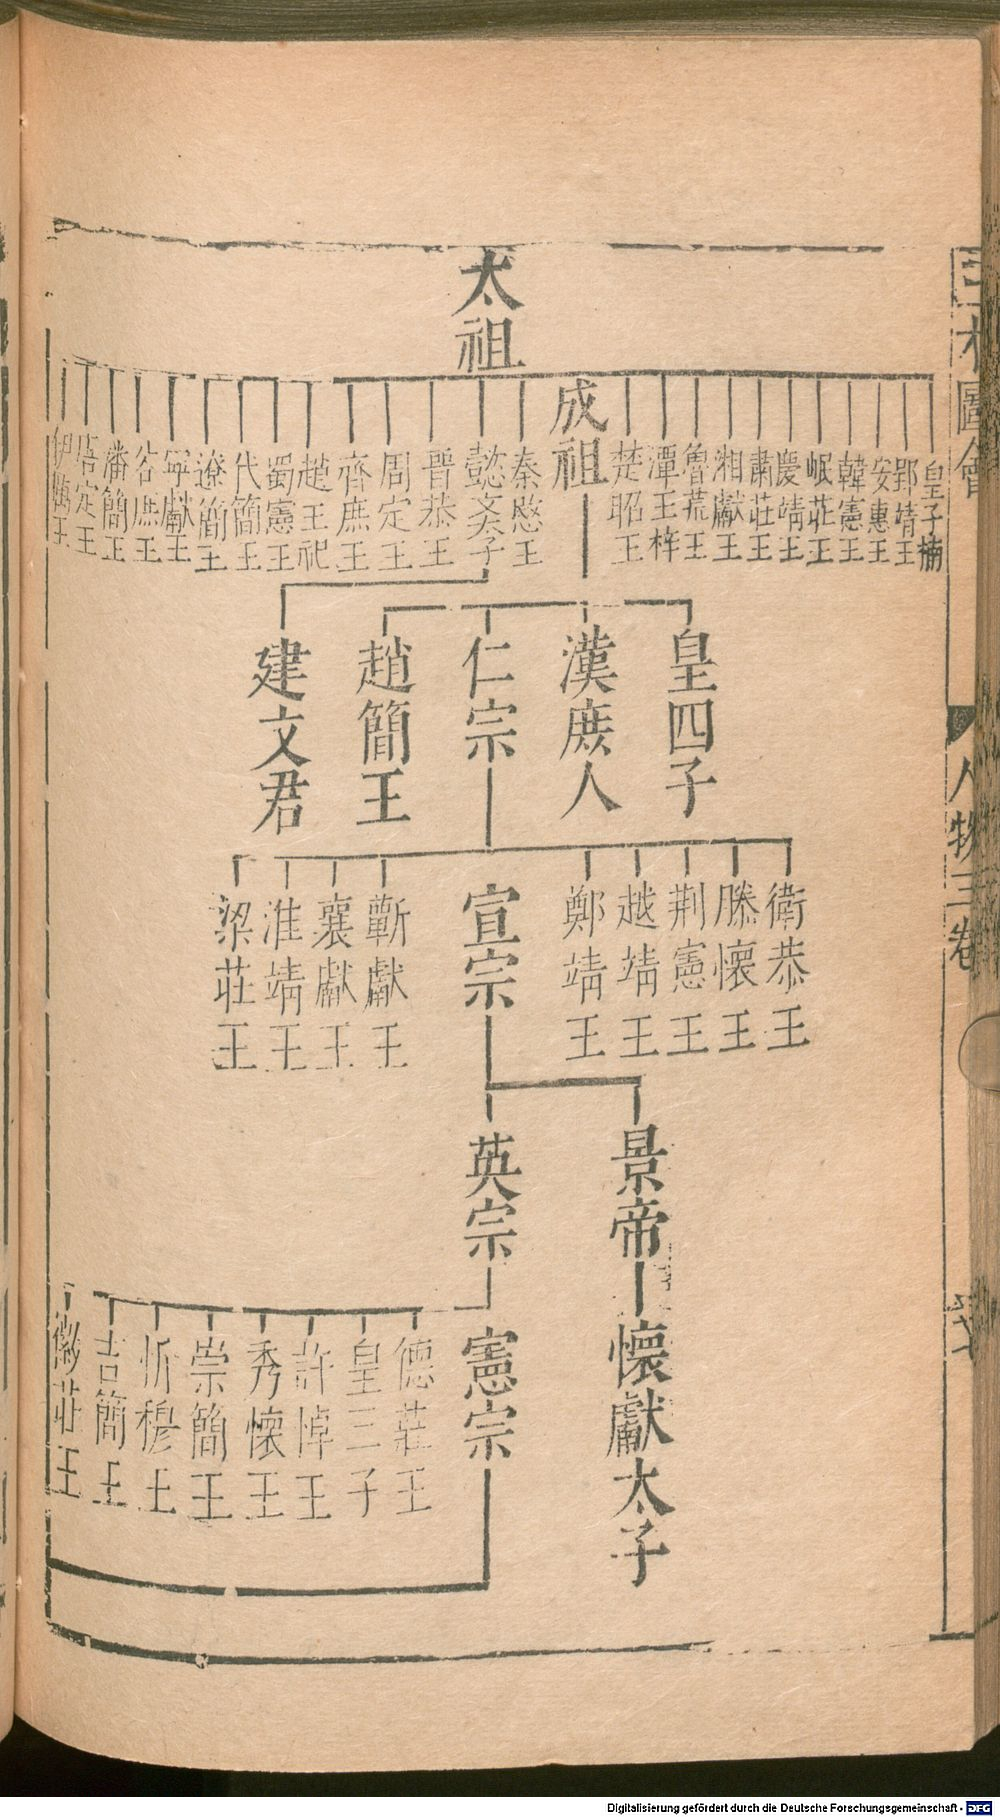 三才圖會
人物三卷
太祖
皇子楠
郢靖王
安惠王
韓憲王
岷莊王
慶靖王
肅莊王
湘獻王
魯荒王
潭王梓
楚昭王
成祖
秦愍王
懿文太子
晉恭王
周定王
齊庶王
趙王杞
蜀憲王
代簡王
遼簡王
寧獻王
谷庶王
潘簡王
唐定王
伊厲王
皇四子
漢庶人
仁宗
趙簡王
建文君
衛恭王
滕懷王
荆憲王
越靖王
鄭靖王
宣宗
蘄獻王
襄獻王
淮靖王
梁莊王
景帝
懷獻太子
英宗
憲宗
德莊王
皇三子
許悼王
秀懷王
崇簡王
忻穆王
吉簡王
徽莊王
Digitalisierung gefördert durch die Deutsche Forschungsgemeinschaft - DFG